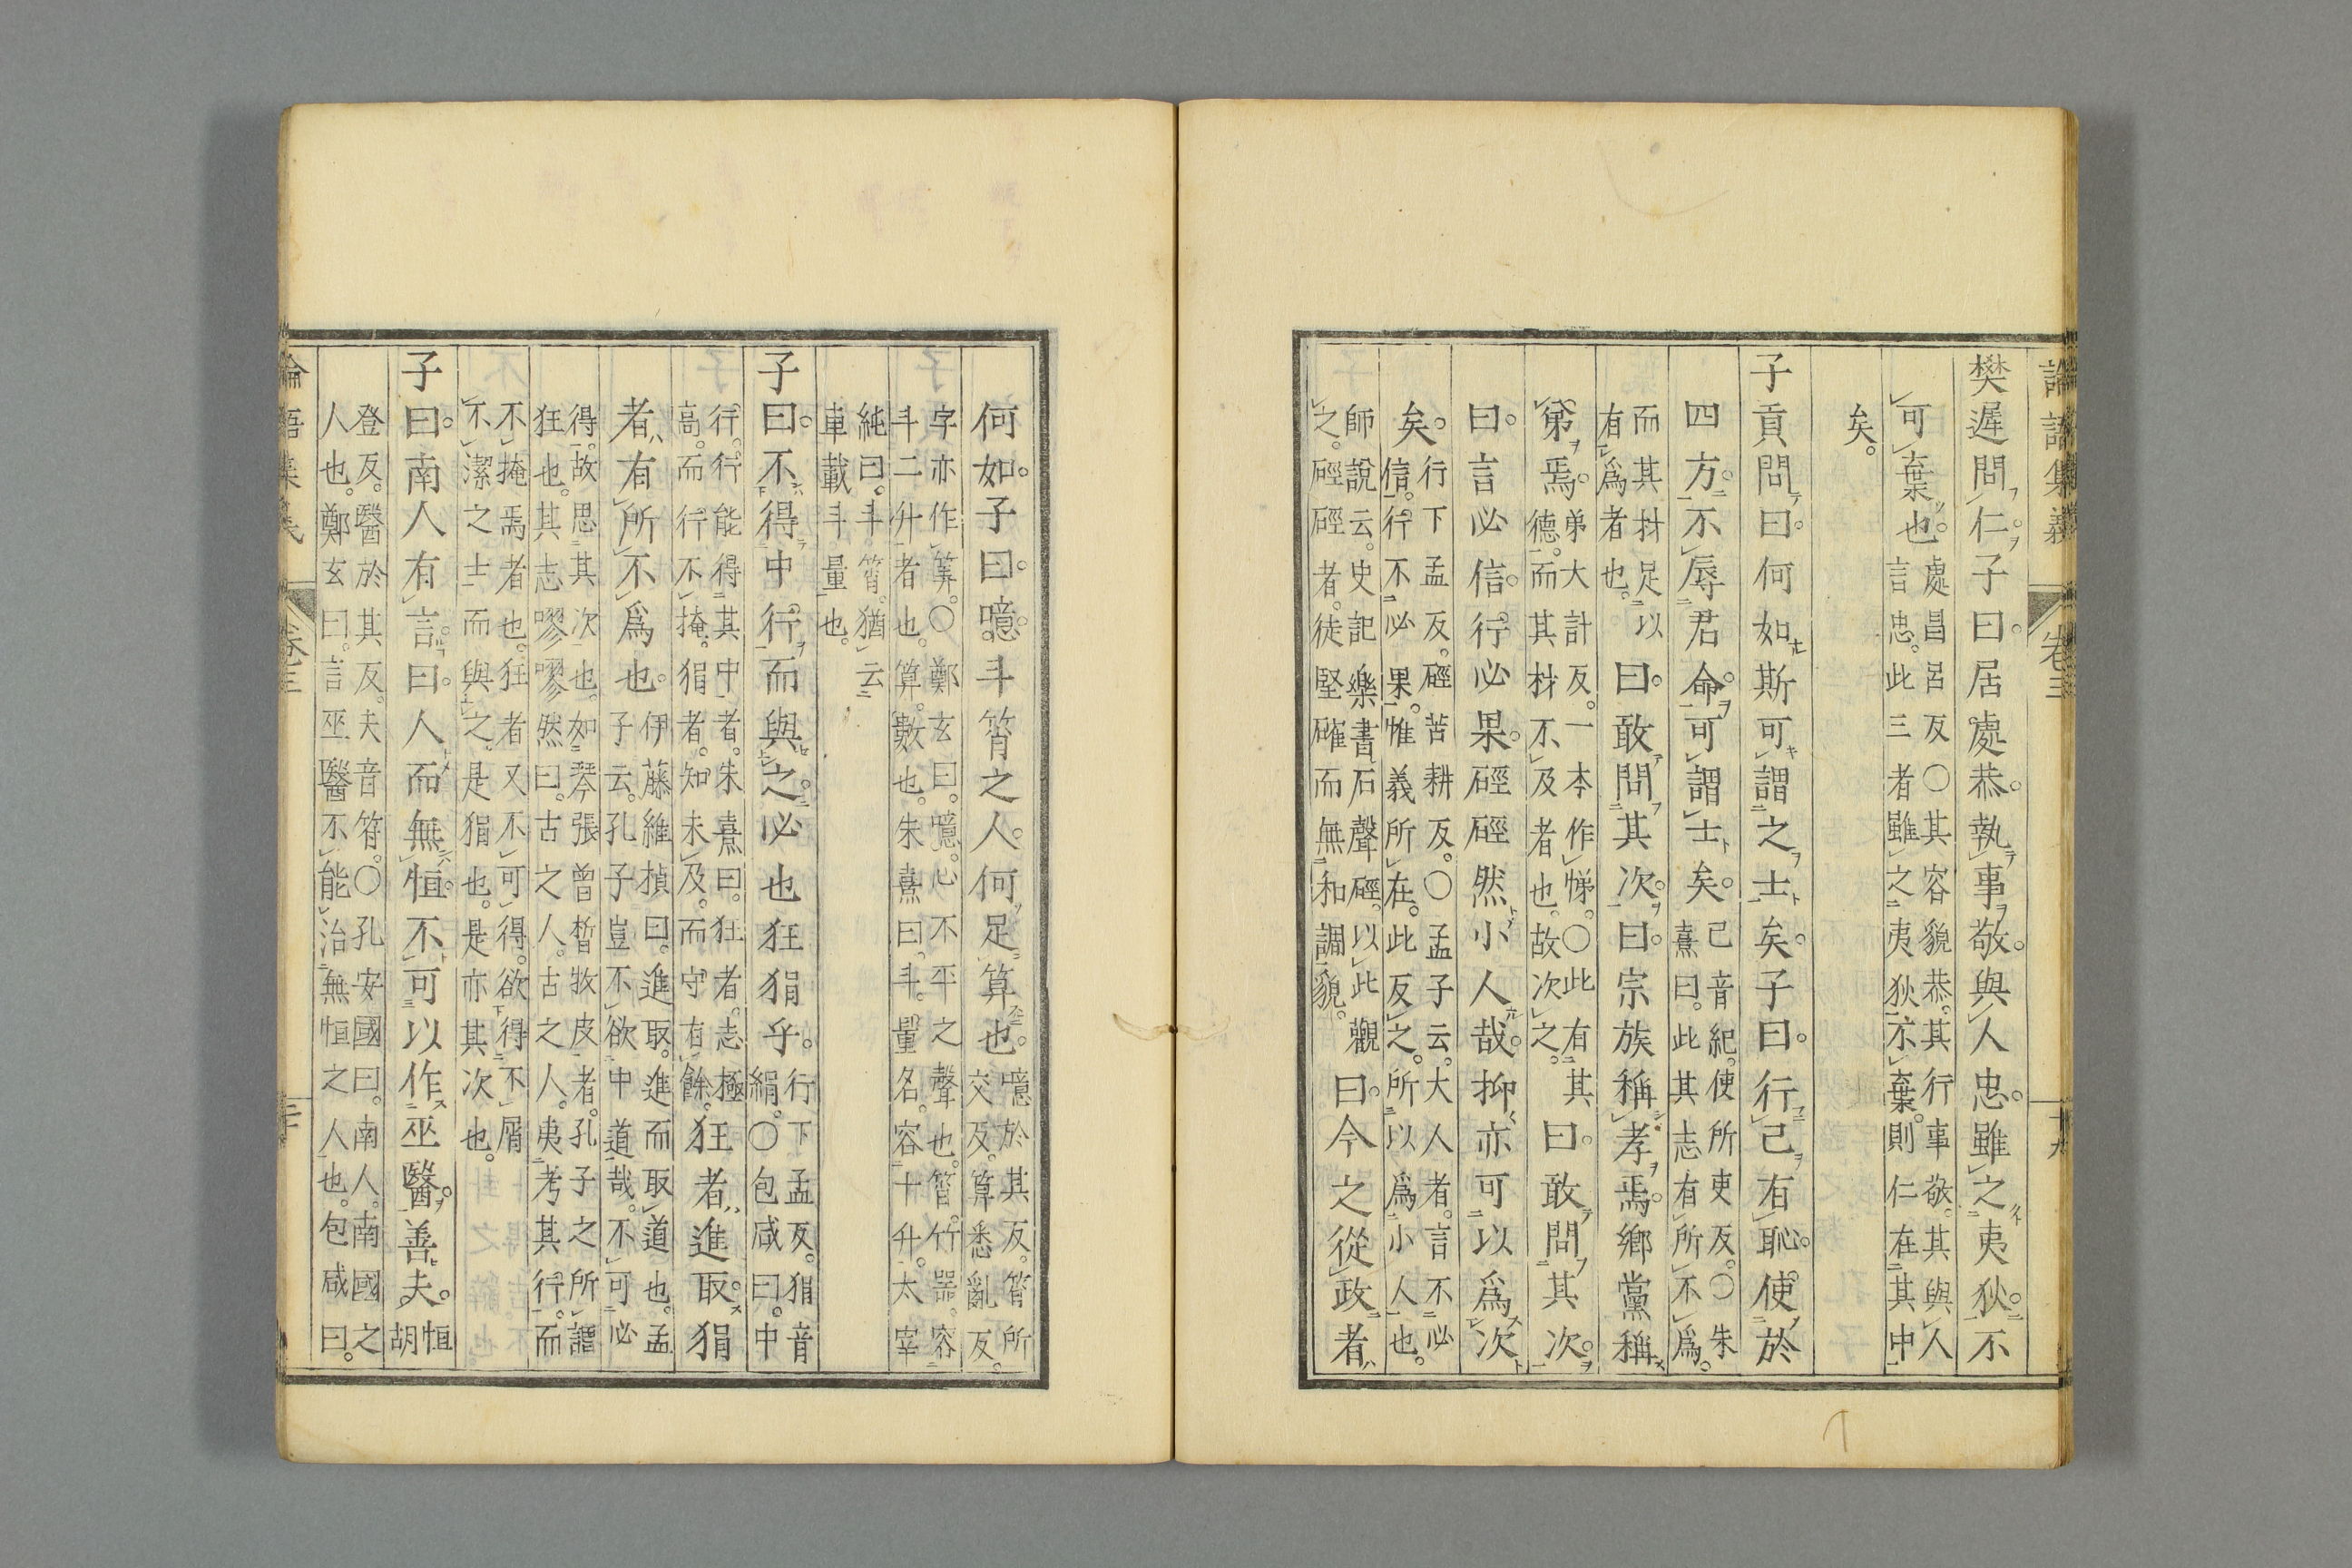 論語集義 卷三 十九
樊遲問仁。子曰。居處恭。執事敬。與人忠。雖之夷狄。不
可棄也。處昌呂反〇其容貌恭。其行事敬。其與人
言忠。此三者雖之夷狄不棄。則仁在其中
矣。
子貢問曰。何如斯可謂之士矣。子曰。行己有恥。使於
四方。不辱君命。可謂士矣。己音紀。使所吏反。〇朱
熹曰。此其志有所不爲。
而其材足以
有爲者也。曰。敢問其次。曰。宗族稱孝焉。鄉黨稱
弟焉。弟大計反。一本作悌。〇此有其
德。而其材不及者也。故次之。曰。敢問其次。
曰。言必信。行必果。硜硜然小人哉。抑亦可以爲次
矣。行下孟反。硜苦耕反。〇孟子云。大人者。言不必
信。行不必果。惟義所在。此反之。所以爲小人也。
師說云。史記樂書。石聲硜。以此觀
之。硜硜者。徒堅確而無和調貌。曰。今之從政者
何如。子曰。噫。斗筲之人。何足算也。噫於其反。筲所
交反。算悉亂反。
字亦作筭。〇鄭玄曰。噫。心不平之聲也。筲。竹器。容
斗二升者也。算。數也。朱熹曰。斗。量名。容十升。太宰
純曰。斗筲。猶云
車載斗量也。
子曰。不得中行。而與之。必也狂狷乎。行下孟反。狷音
絹。〇包咸曰。中
行。行能得其中者。朱熹曰。狂者。志極
高。而行不掩。狷者。知未及。而守有餘。狂者進取。狷
者。有所不爲也。伊藤維楨曰。進取。進而取道也。孟
子云。孔子豈不欲中道哉。不可必
得。故思其次也。如琴張曾皙牧皮者。孔子之所謂
狂也。其志嘐嘐然曰。古之人。古之人。夷考其行。而
不掩焉者也。狂者又不可得。欲得不屑
不潔之士而與之。是狷也。是亦其次也。
子曰。南人有言。曰。人而無恒。不可以作巫醫。善夫。恒
胡
登反。醫於其反。夫音符。〇孔安國曰。南人。南國之
人也。鄭玄曰。言巫醫不能治無恒之人也。包咸曰。
論語集義 卷三 二十